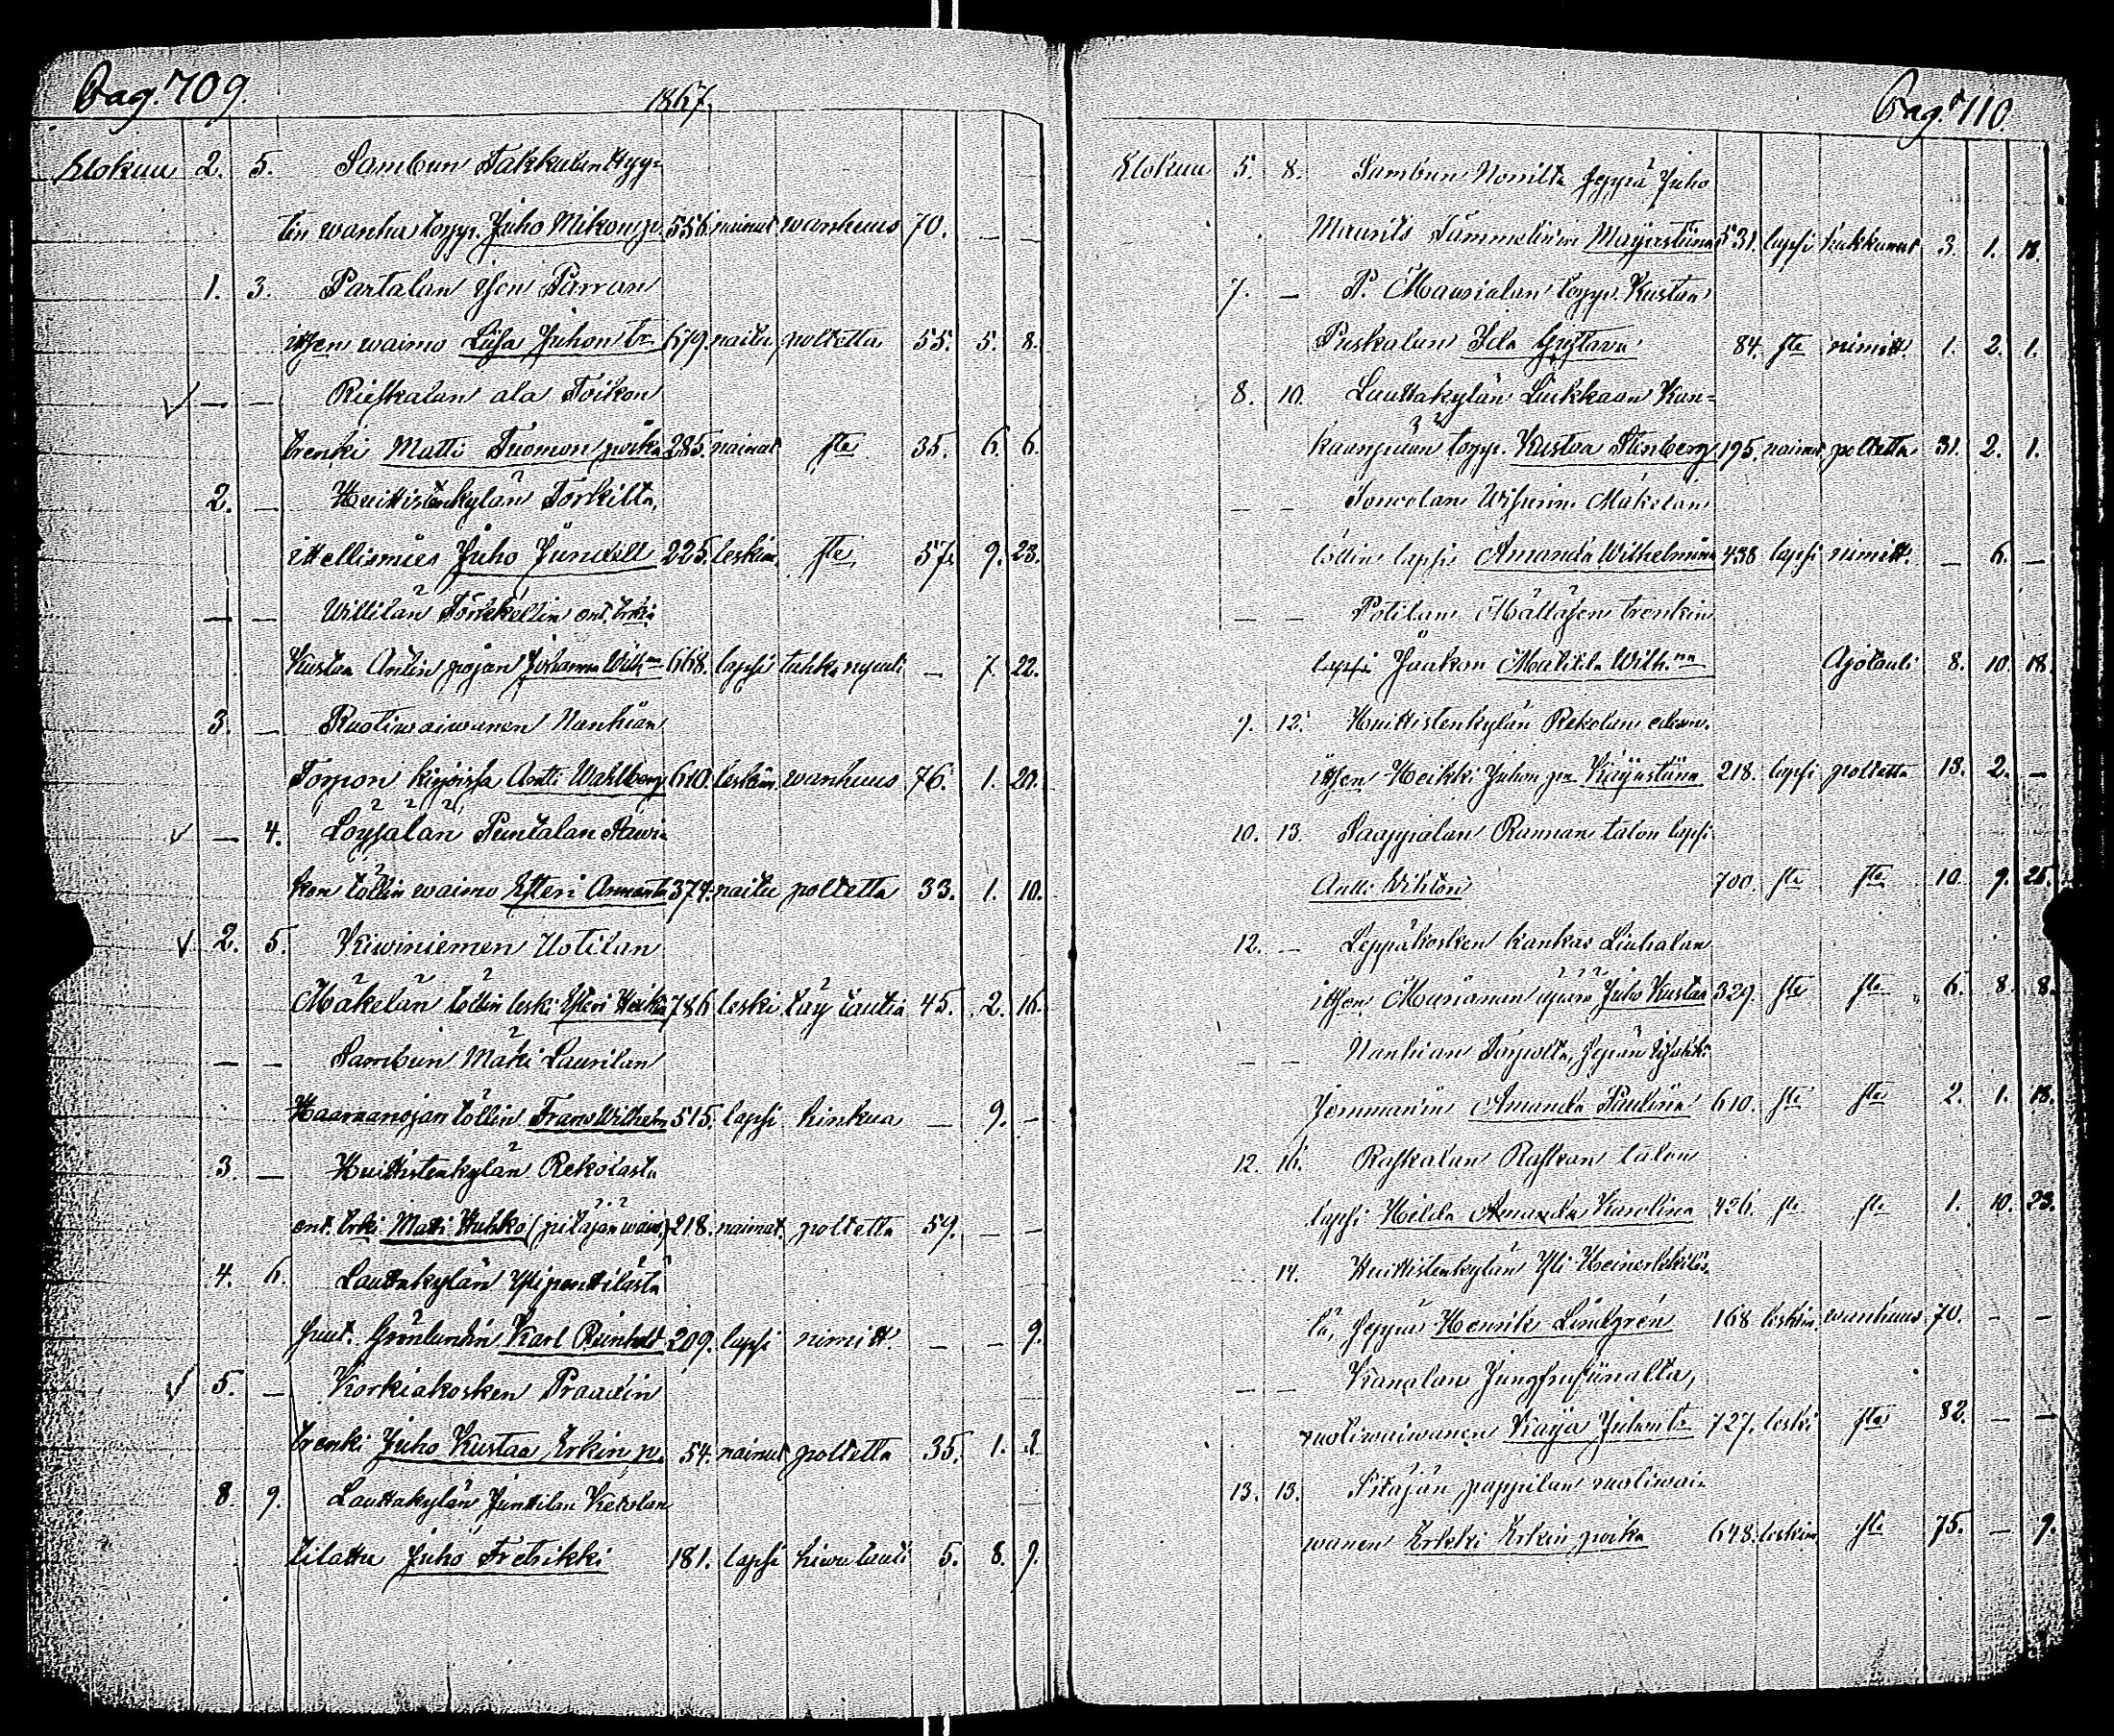 Pag. 709.
1867.
Elokuu 2. 5. Sambun Takkulan Hyy-
tin wanha topp. Juho Mikonp. 556 nainut wanhuus 70. — —
1. 3. Partalan ison Parran
itsen waimo Liisa Juhon tr. 679. naitu poltetta 55. 5. 8.
— — Rieskalan ala Toikon
trenki Matti Tuomon poika 285. nainut ste 35. 6. 6.
2. — Huittistenkylän Torkilta,
itsellismies Juho Jundell 225. leskim. ste 57. 9. 23.
— — Willilän Törkkellin ent. trki
Kustaa Antin pojan Johanna Wilh:na 668. lapsi tuhka nyuli — 7. 22.
3. — Ruotiwaiwanen Nanhian
Torpon kirjoissa Antti Wahlberg 610. leskim. wanhuus 76. 1. 20.
— 4. Loysälän Puntalan Rawi-
kon töllin waimo Esteri Armanta 374. naitu poltetta 33. 1. 10.
2. 5. Kiwiniemen Uotilan
Mäkelän töllin leski Esteri Heikin 786 leski täy tautia 45. 2. 16.
— — Sambun Mäki Laurilan
Haaraanojan töllin Frans Wilhelm 515. lapsi hinkua — 9. —
3. — Huittistenkylän Rekolasta
ent. trki Matti Kuhko (pitäjän waiw.) 218. nainut. poltetta 59. — —
4. 6. Lauttakylän Ylipenttilästä
suut. Grönlundin Karl Reinholt 209. lapsi nimitt. — — 9.
5. — Korkiakosken Praadin
trenki Juho Kustaa Erkin p. 54. nainut poltetta 35. 1. 2
8 9. Lauttakylän Junttilan Ketolan
tilattu Juho Fretrikki 181. lapsi kiwu tauti 5. 8. 9.
Pag. 710.
Elokuu 5. 8. Sambun Nonilta seppä Juho
Maurits Tammelinin Majastiina 531. lapsi kukkumat 3. 1. 18.
7. — P. Maurialan topp. Kustaa
Puskalan Ida Gustava 84. ste nimitt. 1. 2. 1.
8. 10. Lauttakylän Luikkaan Kan-
kaanpään topp. Kustaa Stenberg 195. nainut poltetta 31. 2. 1.
— — Soncolan Mäkelän
töllin lapsi Amanda Wilhelmina 438 lapsi nimitt. — 6. —
— — Potilan Mälläsen trenkin
lapsi Jaakon Matilda Wilh:na Ajotauti 8. 10. 18.
9. 12. Huittistenkylän Rekolan edesm.
itsen Heikki Juhon pn Kaijastiina 218. lapsi poltetta 13. 2. —
10. 13. Raappialan Rannan talon lapsi
Antti Wihtori 700. ste ste 10. 9. 25.
12. — Leppäkosken kankas Liuhalan
itsen Marianan äpärä Juho Kustaa 329. ste ste 6. 8. 8.
— — Nanhian Torpolta, sepän
Jemmanin Amanda Pauliina 610. ste ste 2. 1. 18.
12. 16. Raskalan Raskan talon
lapsi Hilda Amanda Karolina 426. ste ste 1. 10. 23.
14. Huittistenkylän Yli Heinerikkiläs-
tä, seppä Henrik Lindgren 168 leskim. wanhuus 70. — —
— — Kanalan Jungfrusiinalta,
ruotiwaiwanen Kaija Juhontr. 727. leski ste 82. — —
13. 13. Pitäjän pappilan ruotiwai-
wanen Erkki Erkin poika 648. leskim ste 75. — 9.